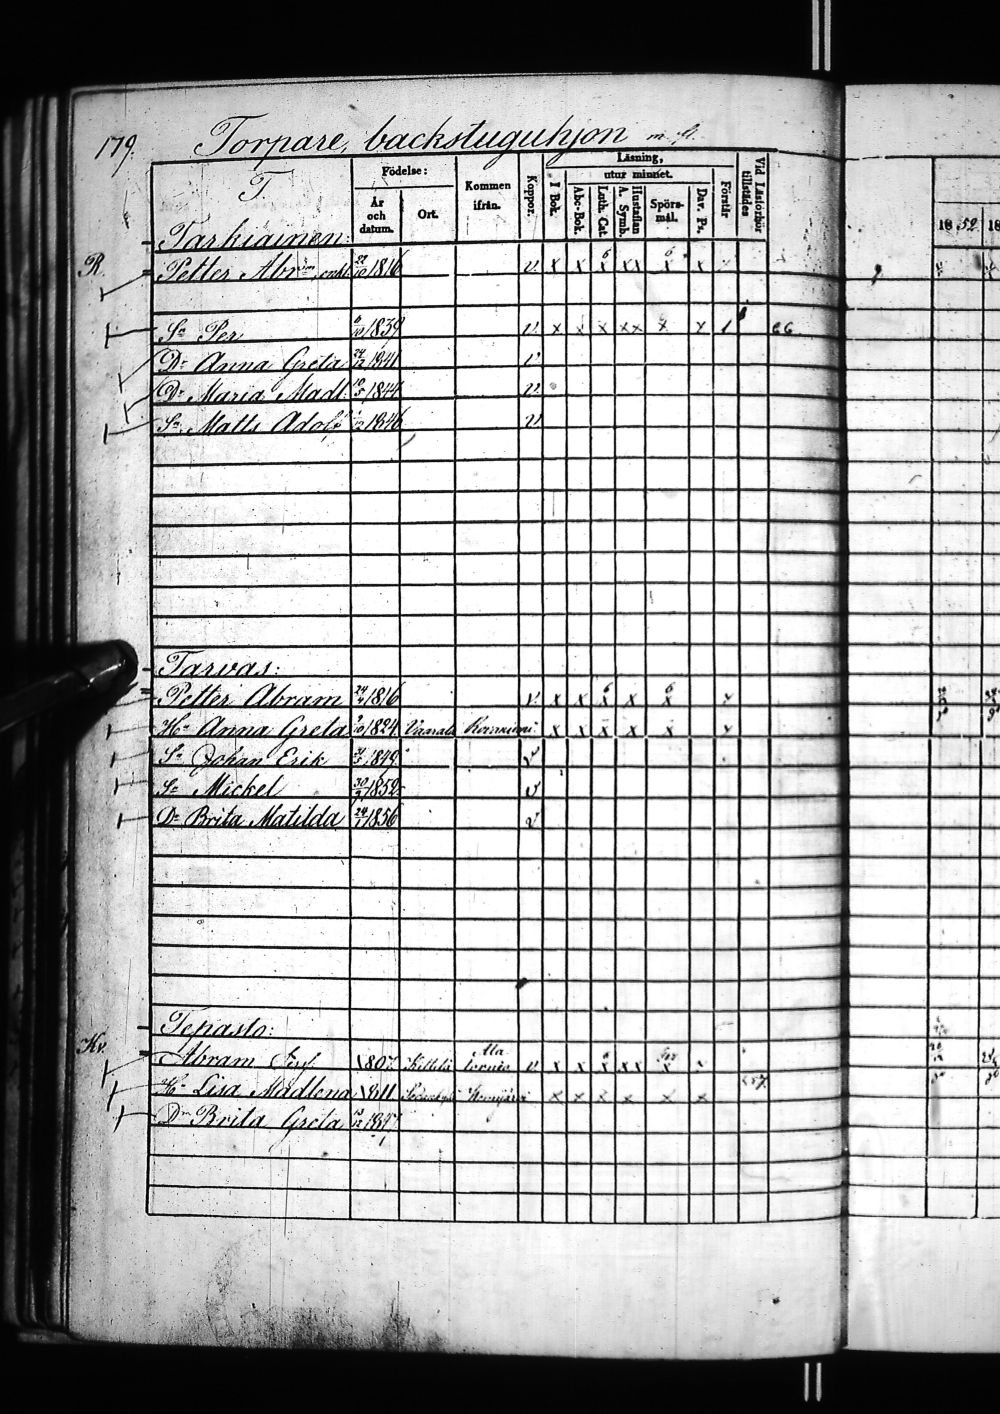 179. Torpare, backstuguhjon m. fl.
T.
Födelse:
År och datum.
Ort.
Kommen ifrån.
Koppor.
Läsning,
I Bok.
utur minnet.
Abc-Bok.
Luth. Cat.
Hustaflan A. Symb.
Spörs-mål.
Dav. Ps.
Förstår
Vid Läsförhör tillstädes
18 52 18
Tarkiainen:
R. Petter Abr:m enkl. 22/10 1816 v x x 6 x xx 6 x x
Sn Per 6/10 1839 v x x x xx x x 1 66
Dr Anna Greta 24/12 1841 v
Dr Maria Madl: 10/5 1844 v
Sn Matts Adolf 1846 v
Tarvas:
Petter Abram 24/4 1816 v x x 6 x x 6 x x
Hu Anna Greta 9/10 1824 x x x x x x
Sn Johan Erik 1849 v
Sn Mickel 1852 v
Dr Brita Matilda 24/1 1856 v
Tepasto:
Kv. Abram Josf 1807 Kittilä Ala tornio v x x x xx x
Hu Lisa Madlena 1811 x x x x x x 57
Dr Brita Greta 1847